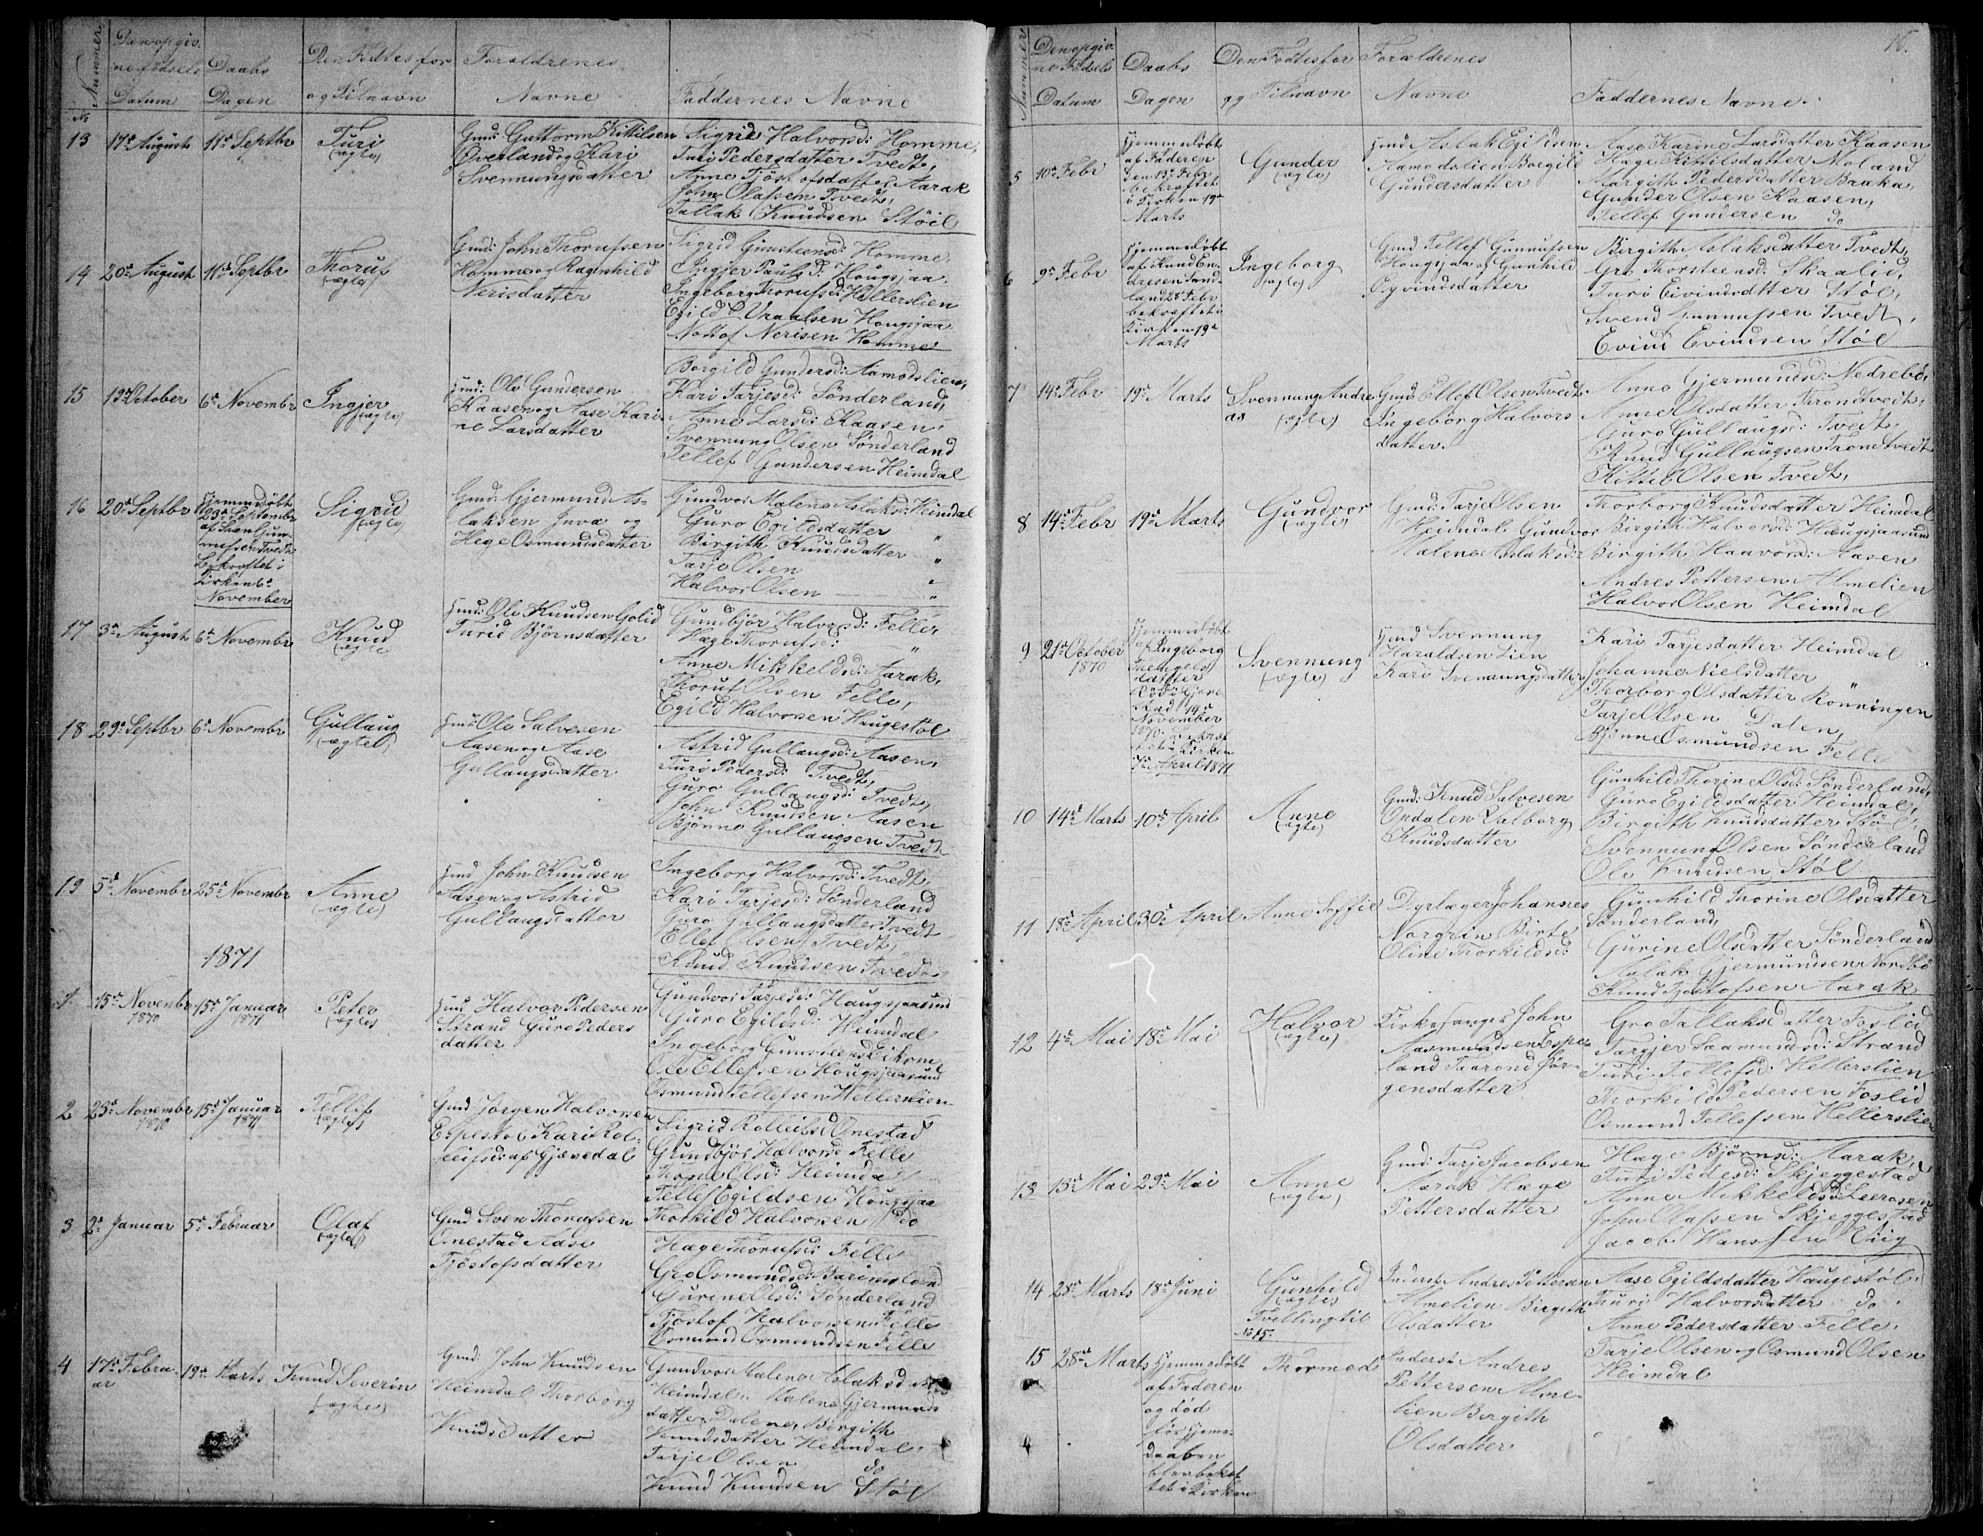 Nummer
Den opgiv.
ne fødsels
Datum
Daabs
Dagen
Den Fødtes for
og Tilnavn
Forældrenes
Navne
Faddernes Navne
No
13 17de August 11te Septbr Turi
(ægte)
Gmd: Guttorm Kittilsen
Øverland og Kari
Svennungsdatter
Sigrid Halvorsd: Homme,
Turi Pedersdatter Tvedt,
Anne Tjøstofsdatter Aarak
John Olafsen Tvedt,
Tallak Knudsen Støil
14 20de August 11te Septbr Thoruf
(ægte)
Gmd: John Thorufsen
Homme og Ragnhild
Nerisdatter
Sigrid Gunsteensd: Homme
Ingjer Paulsd: Hougsjaa.
Ingeborg Thorufsd: Hellerslien
Egild Vraalsen Hougsjaa
Nottof Nerisen Homme
15 October 6te Novembr Ingjer
(ægte)
Gmd: Ole Gundersen
Kaasen og Aase Kari-
ne Larsdatter
Borgild Gundersd: Aamodslien,
Kari Tarjesd: Sønderland,
Anne Larsd: Kaasen,
Svennung Olsen Sønderland
Tellef Gundersen Heimdal
16 20de Septbr Hjemmedøbt
23de September
af Sven Gun-
nufsen Tvedt
Bekræftet i
Kirken 6te
November
Sigrid
(ægte)
Gmd: Gjermund As-
laksen Juva og
Hege Osmundsdatter
Gundvor Malene Aslaksd: Heimdal
Guro Egildsdatter "
Birgith Knudsdatter "
Tarje Olsen
Halvor Olsen "
17 3de August 6te Novembr Knud
(ægte)
Gmd: Ole Knudsen Golid
Turid Bjørnsdatter
Gundbjør Halvorsd: Felle,
Hæge Thorufsd: "
Anne Mikkelsd: Aarak,
Thoruf Olsen Felle,
Egild Halvorsen Haugestøl
18 29de Septbr 6te Novembr Gullaug
(ægte)
Gmd: Ole Salvesen
Aasen og Aase
Gullaugsdatter
Astrid Gullaugsd: Aasen,
Turi Pedersd: Tvedt,
Guro Gullaugsd: Tvedt,
John Knudsen Aasen
Bjønne Gullaugsen Tvedt
19 5te Novembr 25de Novembr Anne
(ægte)
Gmd John Knudsen
Aasen og Astrid
Gullaugsdatter
Ingeborg Halvorsd: Tvedt,
Kari Tarjesd: Sønderland
Guro Gullaugsdatter Tvedt
Ellef Olsen Tvedt,
Knud Knudsen Tvedt
1871
1. 15de Novembr 1870 15de Januar 1871 Peter
(ægte)
Gmd Halvor Pedersen
Strand Guro Peders
datter
Gundvor Tarjesd: Haugsjaasund
Guro Egildsd: Heimdal
Ingeborg Gunsteensd Eikom
Ole Ellefsen Hougsjaasund
Osmund Tellefsen Hellerslien
2 23de Novembr 1870 15de Januar 1871 Tellef
(ægte)
Gmd Jørgen Halvorsen
Espestøl Kari Rol-
leifsd: af Gjøvedal
Sigrid Rolleifsd Onestad
Gundbjør Halvorsd Felle
Thone Olsd: Heimdal
Tellef Egildsen Hougsjaa
Thorkild Halvorsen do
3 2de Januar 5te Februar Olaf
(ægte)
Gmd Sven Thorufsen
Onestad Aase
Tjøstofsdatter
Hæge Thorufsd: Felle
Gro Osmundsd: Barimsland
Gurene Olsd: Sønderland
Tjøstof Halvorsen Felle
Osmund Osmundsen Felle
4 17de Febru-
ar 19de Marts Knud Severin
(ægte)
Gmd: John Knudsen
Heimdal Thorborg
Knudsdatter
Gundvor Malene Aslaksdat
Heimdal, Malene Gjermunds
datter Dalene, Birgith
Knudsdatter Heimdal,
Tarje Olsen do
Knud Knudsen Støl
16.
Nummer
Den opgiv-
ne fødsels
Datum
Daabs
Dagen
Den Fødtes for
og Tilnavn
Forældrenes
Navne
Faddernes Navne.
5 10de Febr Hjemmedøbt
af Faderen
den 13de Febr
bekræftet
i Kirken 19de
Marts
Gunder
(ægte)
Gmd: Aslak Egildsen
Aamodslien Borgild
Gundersdatter
Aase Karine Larsdatter Kaasen
Hæge Kittilsdatter Moland
Margith Pedersdatter Baaka,
Gunder Olsen Kaasen,
Tellef Gundersen do
6 9de Febr Hjemmedøbt
af Knud En-
dresen Sund-
land 28 Febr
bekræftet i
Kirken 19de
Marts
Ingeborg
(ægte)
Gmd Tellef Gunnufsen
Hougsjaa og Gunhild
Øyvindsdatter
Birgith Aslaksdatter Tvedt,
Gro Thorsteensd: Skaalid,
Turi Eivindsdatter Støl,
Svend Gunnufsen Tvedt,
Evind Evindsen Støl
7 14de Febr 19de Marts Svennung Andre
as (ægte)
Gmd: Ellef Olsen Tvedt
Ingeborg Halvors
datter.
Anne Gjermundsd: Nedrebø,
Anne Olsdatter Trondtvedt,
Guro Gullaugsd: Tvedt,
Knud Gullaugsen Trondtvedt
Kittil Olsen Tvedt,
8 14de Febr 19de Marts Gundvor
(ægte)
Gmd: Tarje Olsen
Heimdal, Gundvor
Malene Aslaksd:
Thorborg Knudsdatter Heimdal
Birgith Halvorsd: Haugsjaasund
Birgith Haavorsd: Aasen
Andres Pettersen Almelien
Halvor Olsen Heimdal
9 21de October
1870 Hjemmedøbt
af Ingeborg
datter
November
1870. Bekræf-
tet i Kirken
7de April 1871
Svennung
(ægte)
Gmd Svennung
Haraldsen Lien
Kari Svennungsdatter
Kari Tarjesdatter Heimdal
Johanne Nielsdatter "
Thorborg Olsdatter Rønningen
Tarje Olsen Dalen,
Bjønn Osmundsen Felle
10 14de Marts 10de April Anne
(ægte)
Gmd: Knud Salvesen
Opdalen Valborg
Knudsdatter
Gunhild Thorine Olsd: Sønderland,
Guro Egildsdatter Heimdal,
Birgith Knudsdatter Støl,
Svennung Olsen Sønderland
Ole Knudsen Støl
11 18de April 30te April Anne Soffie
Dyrlæge Johannes
Norgrin Birte
Oline Thorkildsd:
Gunhild Thorine Olsdatter
Sønderland,
Gurine Olsdatter Sønderland
Aslak Gjermundsen Nordbø
Knud Tjøstofsen Aarak
12 4de Mai 18de Mai Halvor
(ægte)
Kirkesanger John
Aasmundsen Espe-
land Taarond Jør-
gensdatter
Gro Tallaksdatter Foslid
Targjer Saamundsd: Strand
Turi Tellefsd: Hellerslien
Thorkild Pedersen Foslid
Osmund Tellefsen Hellerslien
13 13de Mai 29de Mai Anne
(ægte)
Gmd: Tarje Jacobsen
Aarak Hæge
Pettersdatter
Hæge Bjørnsd: Aarak,
Turi Pedersd: Skjeggestad
Anne Mikkelsd: Leeraasen
John Olafsen Skjeggestad
Jacob Hanssen Eeig
14 28de Marts 18de Juni Gunhild
(ægte)
Tvilling til
No 15.
Inderst Andres Petteren
Almelien Birgith
Olsdatter
Aase Egildsdatter Haugestøl.
Thuri Halvorsdatter do.
Anne Pedersdatter Felle.
Tarje Olsen og Osmund Olsen
Heimdal
15 28de Marts Hjemmedøbt
af Faderen
og død
før Hjemme-
daaben
blev bekræf
tet i Kirken
Thormod
Inderst: Andres
Pettersen Alme-
lien Birgith
Olsdatter